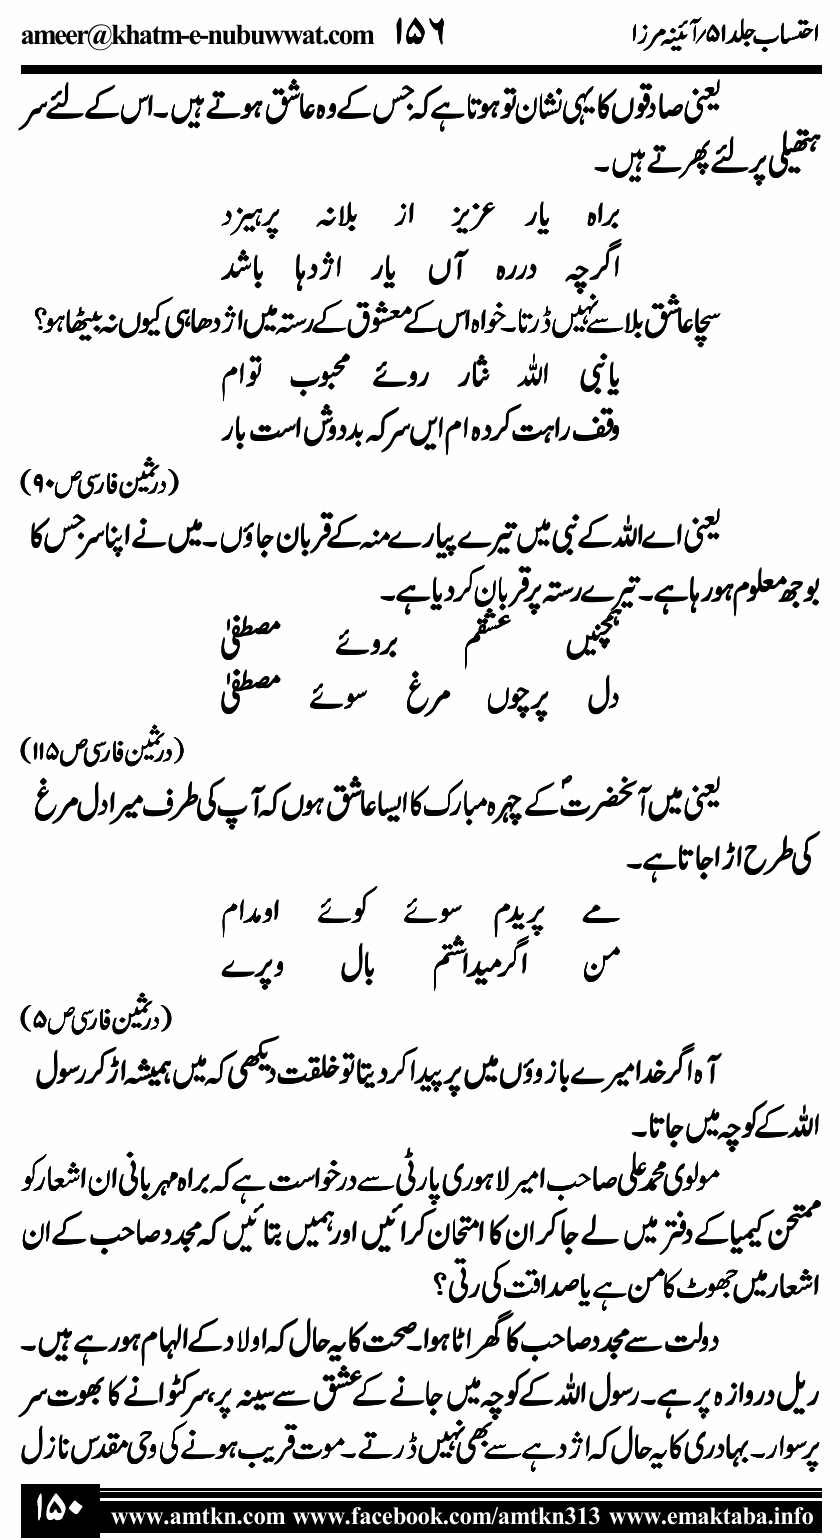 احتساب جلد ۵۱/آئینہ مرزا ۱۵۶ ameer@khatm-e-nubuwwat.com
یعنی صادقوں کا یہی نشان تو ہوتا ہے کہ جس کے وہ عاشق ہوتے ہیں۔ اس کے لئے سر
ہتھیلی پر لئے پھرتے ہیں۔
براہ یار عزیز از بلانہ پرہیزد
اگرچہ دررہ آں یار اژدہا باشد
سچا عاشق بلا سے نہیں ڈرتا۔ خواہ اس کے معشوق کے رستہ میں اژدھا ہی کیوں نہ بیٹھا ہو؟
یا نبی اللہ نثار روئے محبوب توام
وقف راہت کردہ ام ایں سرکہ بدوش است بار
(درثمین فارسی ص۹۰)
یعنی اے اللہ کے نبی میں تیرے پیارے منہ کے قربان جاؤں۔ میں نے اپنا سر جس کا
بوجھ معلوم ہورہا ہے۔ تیرے رستہ پر قربان کردیا ہے۔
ہمچنیں عشقم بروئے مصطفیٰ
دل پرچوں مرغ سوئے مصطفیٰ
(درثمین فارسی ص۱۱۵)
یعنی میں آنحضرتؐ کے چہرہ مبارک کا ایسا عاشق ہوں کہ آپ کی طرف میرا دل مرغ
کی طرح اڑا جاتا ہے۔
مے پریدم سوئے کوئے اومدام
من اگرمیداشتم بال وپرے
(درثمین فارسی ص۵)
آہ اگر خدا میرے بازوؤں میں پر پیدا کردیتا تو خلقت دیکھی کہ میں ہمیشہ اڑ کر رسول
اللہ کے کوچہ میں جاتا۔
مولوی محمد علی صاحب امیر لاہوری پارٹی سے درخواست ہے کہ براہ مہربانی ان اشعار کو
ممتحن کیمیا کے دفتر میں لے جاکر ان کا امتحان کرائیں اور ہمیں بتائیں کہ مجدد صاحب کے ان
اشعار میں جھوٹ کا من ہے یا صداقت کی رتی؟
دولت سے مجدد صاحب کا گھر اٹا ہوا۔ صحت کا یہ حال کہ اولاد کے الہام ہورہے ہیں۔
ریل دروازہ پر ہے۔ رسول اللہ کے کوچہ میں جانے کے عشق سے سینہ پر، سرکٹوانے کا بھوت سر
پر سوار۔ بہادری کا یہ حال کہ اژدہے سے بھی نہیں ڈرتے۔ موت قریب ہونے کی وحی مقدس نازل
۱۵۰ www.amtkn.com www.facebook.com/amtkn313 www.emaktaba.info